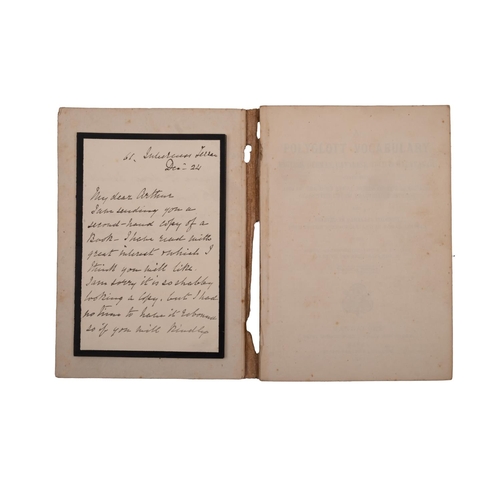 61, Inverness Terrace
Dec - 24
My dear Arthur
I am sending you a
second-hand copy of a
Book - I have read with
great interest & which I
think you will like
I am sorry it is so shabby
looking a copy, but I had
no time to have it rebound
so if you will kindly